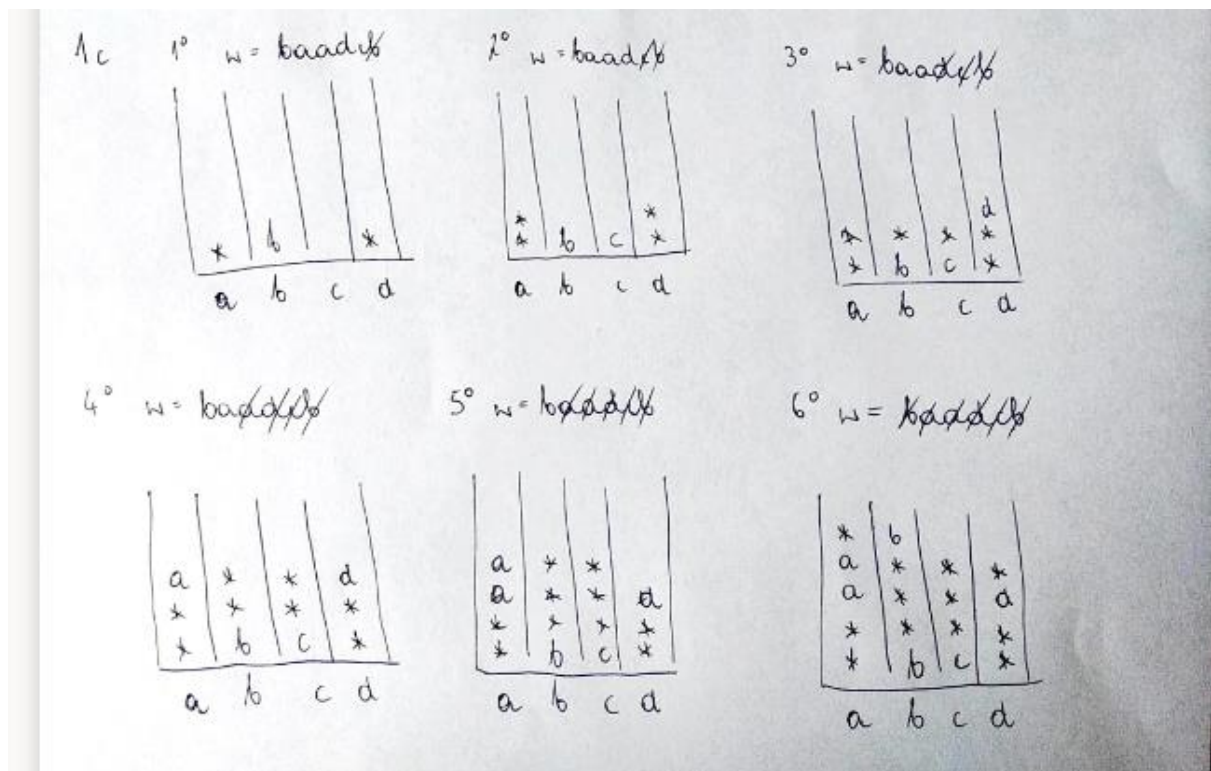 1c 1° w = baadcb
* b *
a b c d
2° w = baadcb
* *
* b c *
a b c d
3° w = baadcb
d
* * * *
* b c *
a b c d
4° w = baadcb
a * * d
* * * *
* b c *
a b c d
5° w = baadcb
a * *
a * * d
* * * *
* b c *
a b c d
6° w = baadcb
* b
a * * *
a * * d
* * * *
* b c *
a b c d